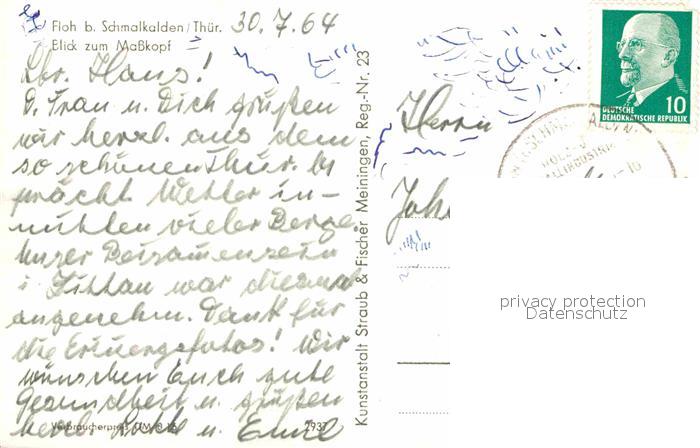 Floh b. Schmalkalden/Thür. 30.7.64
Blick zum Maßkopf
Lbr. Hans!
D. Frau u. Dich grüßen
wir herzl. aus dem
so schönen Thür. In
prächt. Wetter in-
mitten vieler Berge.
Unser Beisamensein
i. Zittau war
angenehm. Dank für
die Erinergsfotos! Wir
wünschen Euch gute
Gesundheit u. grüßen
herzl. u.
Verbraucherpreis DM 0,15 2937
Kunstanstalt Straub & Fischer Meiningen, Reg.-Nr. 23
Herrn
Joh
10
DEUTSCHE
DEMOKRATISCHE REPUBLIK
privacy protection
Datenschutz